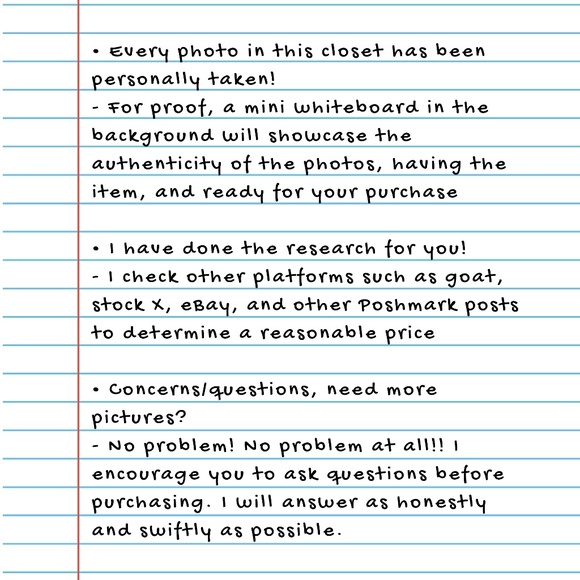 • Every photo in this closet has been
personally taken!
- For proof, a mini whiteboard in the
background will showcase the
authenticity of the photos, having the
item, and ready for your purchase
• I have done the research for you!
- I check other platforms such as goat,
stock X, eBay, and other Poshmark posts
to determine a reasonable price
• Concerns/questions, need more
pictures?
- No problem! No problem at all!! I
encourage you to ask questions before
purchasing. I will answer as honestly
and swiftly as possible.